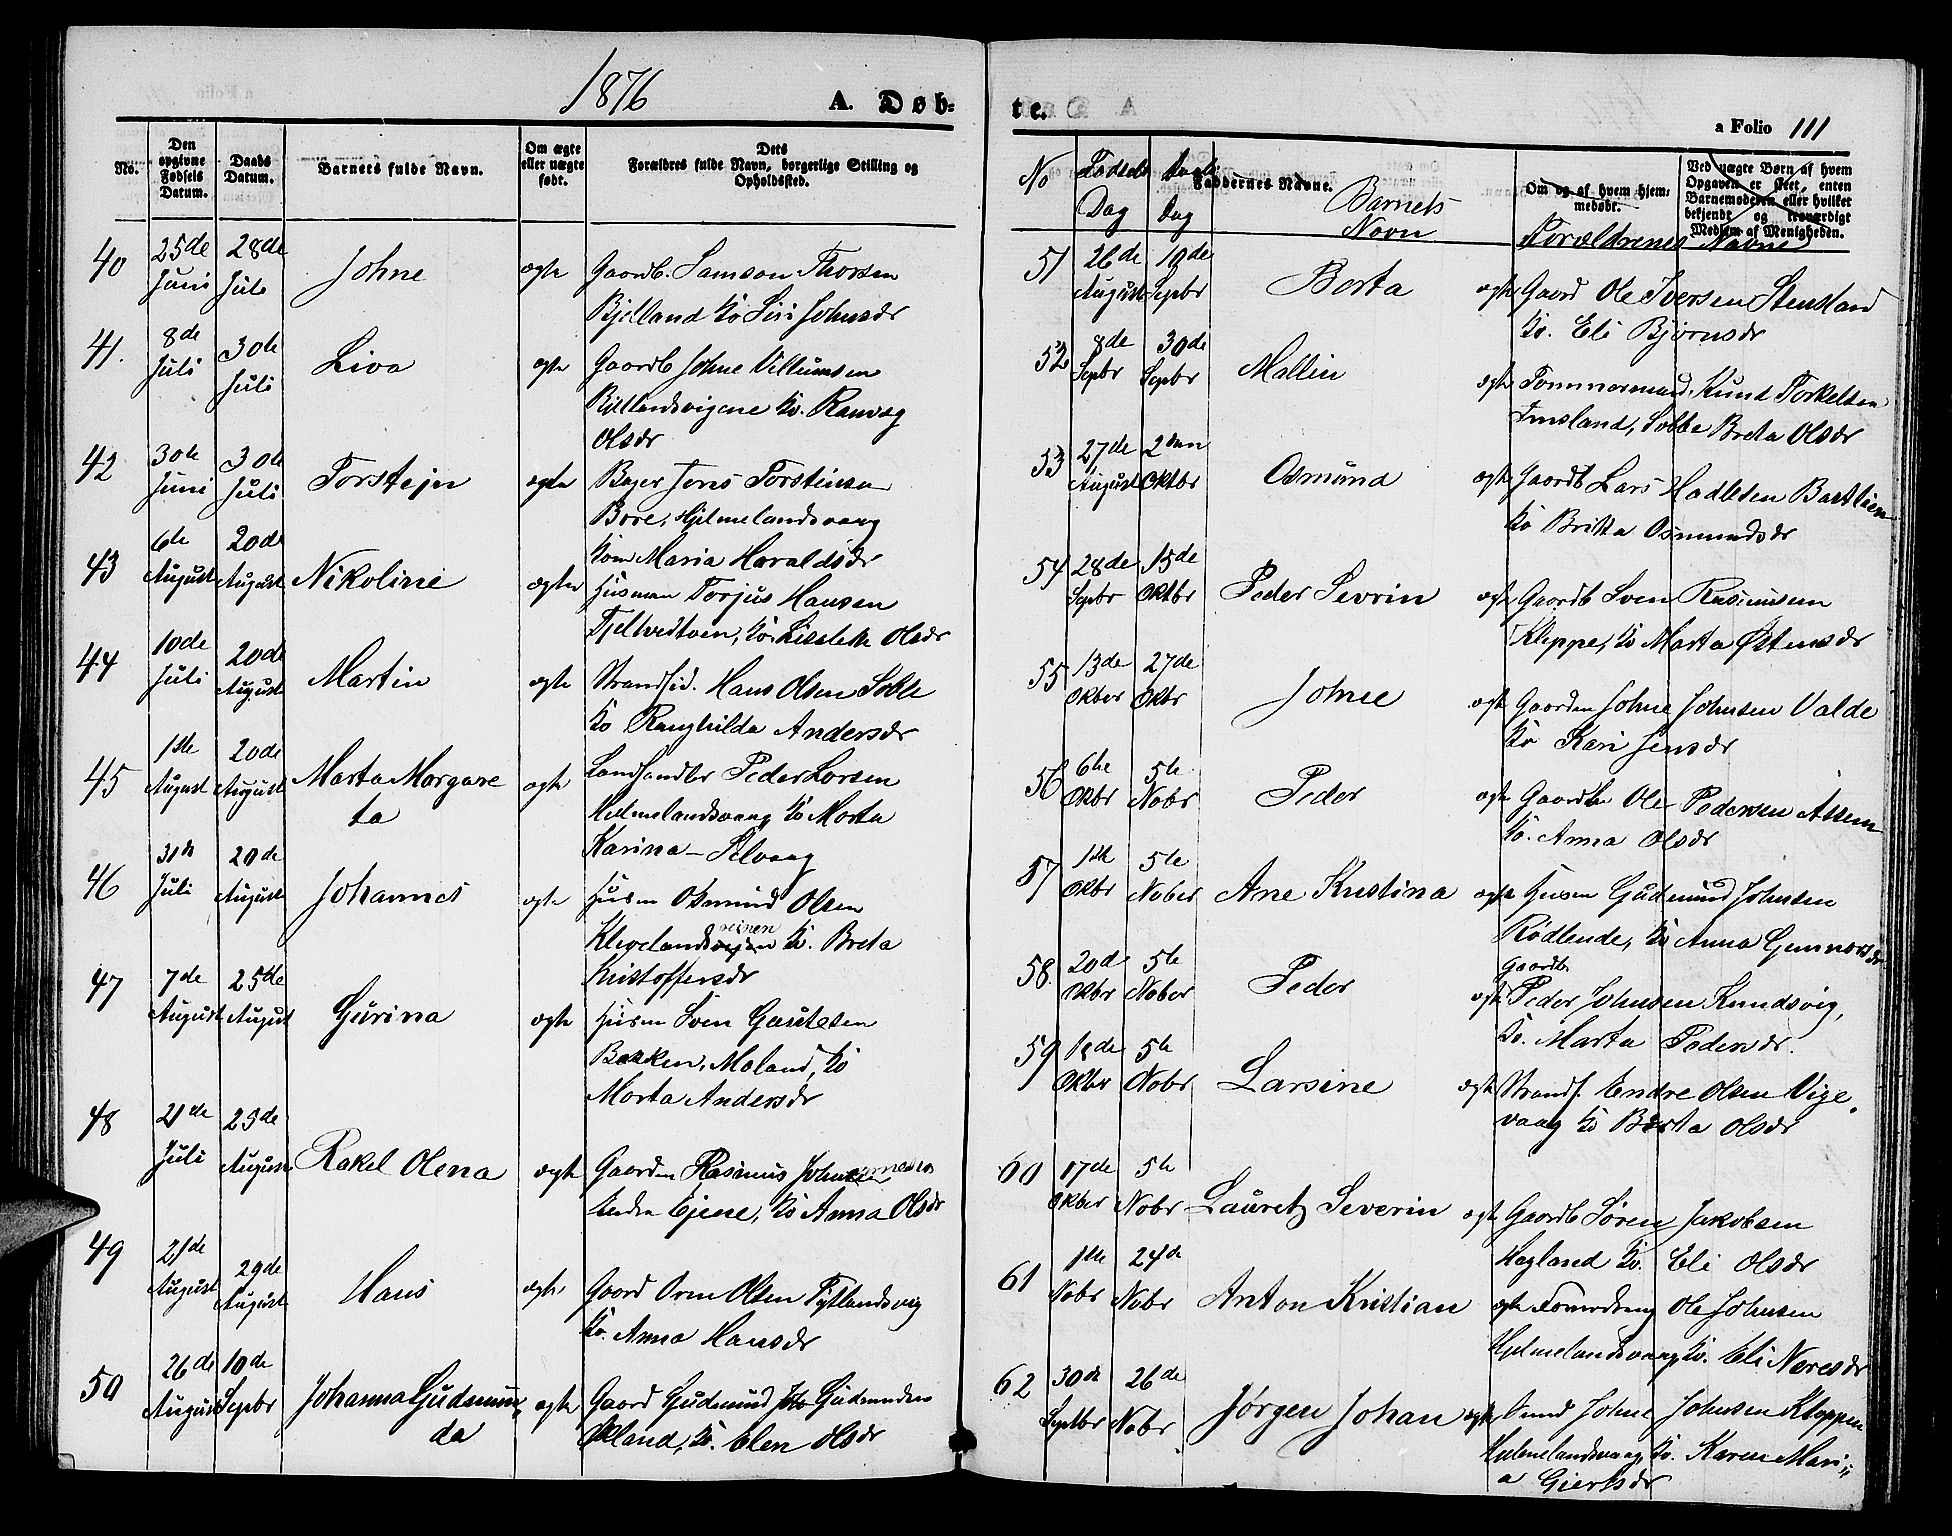 1876
A. Døb-
No.
Den opgivne Fødsels Datum.
Daabs Datum.
Barnets fulde Navn.
Om ægte eller uægte født.
Dets Forældres fulde Navn, borgerlige Stilling og Opholdssted.
40 25de Juni 28de Juli Johne ægte Gaardb. Samson Thorsen
Bjelland Ko Siri Johnsdr
41. 8de Juli 30te Juli Liva ægte Gaardb Johne Villumsen
Bjellandsvigene Ko. Ranvæg
Olsdr
42 30te Juni 30te Juli Torstejn ægte Bager Jens Torstensen
Bore, Hjelmelandsvaag
Kone Maria Haraldsdr
43 6te August 20de August Nikoline ægte Husman Torjus Hansen
Fjeltvedtoen, Ko. Lisslette Olsdr
44 10de Juli 20de August Martin ægte Strandsid. Hans Olsen Soble
Ko Ranghilda Andersdr
45 1ste August 20de August Marta Margareta ægte Landhandler Peder Larsen
Helmelandsvaag Ko Marta
Karina Pelvaag
46 31te Juli 20de August Johannes ægte Husm Osmund Olsen
Klevelandsvejen Ko. Breta
Kristoffersdr
47 7de August 25de August Gurina ægte Husm Sven Gautesen
Bakken, Moland, Ko
Marta Andersdr
48 21de Juli 25de August Rakel Olena ægte Gaardm Rasmus
Indre Ejene, Ko Anna Olsdr
49 21de August 29de August Hans ægte Gaard Orm Olsen Fytlandsvig
Ko. Anna Hansdr
50 26de August 10de Sepbr Johanna Gudmunda ægte Gaard Gudmund Gudmundsen
Økland, Ko. Elen Olsdr
te.
a Folio 111
No
Fødsels Dag
Daabs Dag
Faddernes Navne.
Barnets Navn
Om og af hvem hjemmedøbt.
Ved uægte Børn af hvem Opgaven er skeet, enten Barnemoderen eller hvilket bekjendt og troværdigt Medlem af Menigheden.
Forældrenes Navne
51 26de August 10de Sepbr Berta ægte Gaard Ole Iversen Stensland
Ko. Eli Bjørnsdr
52 8de Sepbr 30de Sepbr Mallin ægte Tømmermand Knud Torkelsen
Imsland, Sobbe Breta Olsdr
53 27de August 2den Oktbr Osmund ægte Gaardb Lars Hadlesen Bastlien
Ko Britta Osmundsdr
54 28de Sepbr 15de Oktbr Peder Sevrin ægte Gaardb Sven Rasmusen
Kleppe, Ko Marta Østensdr
55 13de Oktber 27de Oktbr Johne ægte Gaardm Johne Johnsen Valde
Ko Kari Jensdr
56 6te Oktbr 5te Nobr Peder ægte Gaardb Ole Pedersen Assem
Ko. Anna Olsdr
57 1ste Oktbr 5te Nober Ane Kristina ægte Husm Gudmund Johnsen
Rødlende, Ko Anna Gunnarsdr
58. 20d Oktbr 5te Nober Peder ægte Gaardb. Peder Johnsen Knudsvig,
Ko. Marta Pedersdr.
59 18de Oktbr 5te Nobr Larsine ægte Strands. Endre Olsen Vige-
vaag Ko Berta Olsdr
60 17de Oktber 5te Nobr Lauretz Severin ægte Gaardb Søren Jakobsen
Hagland Ko. Eli Olsdr
61 1ste Nobr 24de Nobr Anton Kristian ægte Ole Johnsen
Hjelmelandsvaag, Ko. Eli Neresdr
62 30te Septbr 26de Nobr Jørgen Johan ægte Johne Johnsen Kloppen
Helmelandsvaag, Ko. Karen Mari-
a Giertsdr